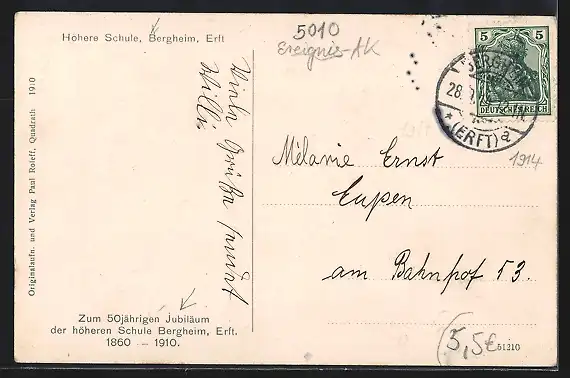 Höhere Schule, Bergheim, Erft
5010
Ereignis-AK
5 5
DEUTSCHES REICH
BERGHEIM
28
* (ERFT) a
1914
Viele Grüße sendet
Willi
Mélanie Ernst
Eupen
am Bahnhof 53.
Originalaufn. und Verlag Paul Roleff, Quadrath 1910
Zum 50jährigen Jubiläum
der höheren Schule Bergheim, Erft.
1860 – 1910.
5,5€
51210